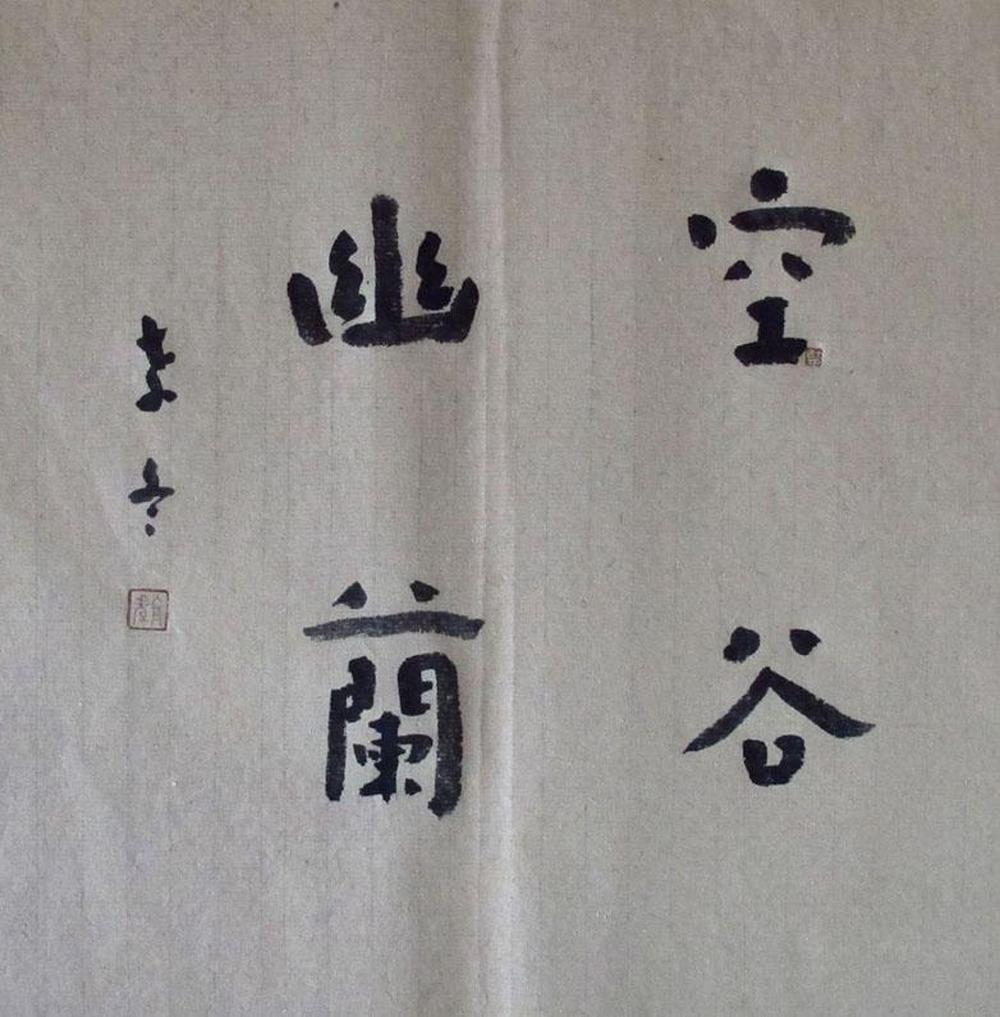 空谷
幽蘭